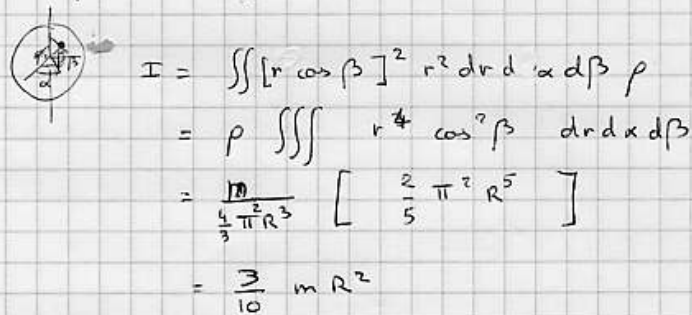 α β
I = ∫∫ [r cos β]² r² dr d α dβ ρ
= ρ ∫∫∫ r⁴ cos² β dr d α dβ
= m / (4/3 π² R³) [ 2/5 π² R⁵ ]
= 3/10 m R²